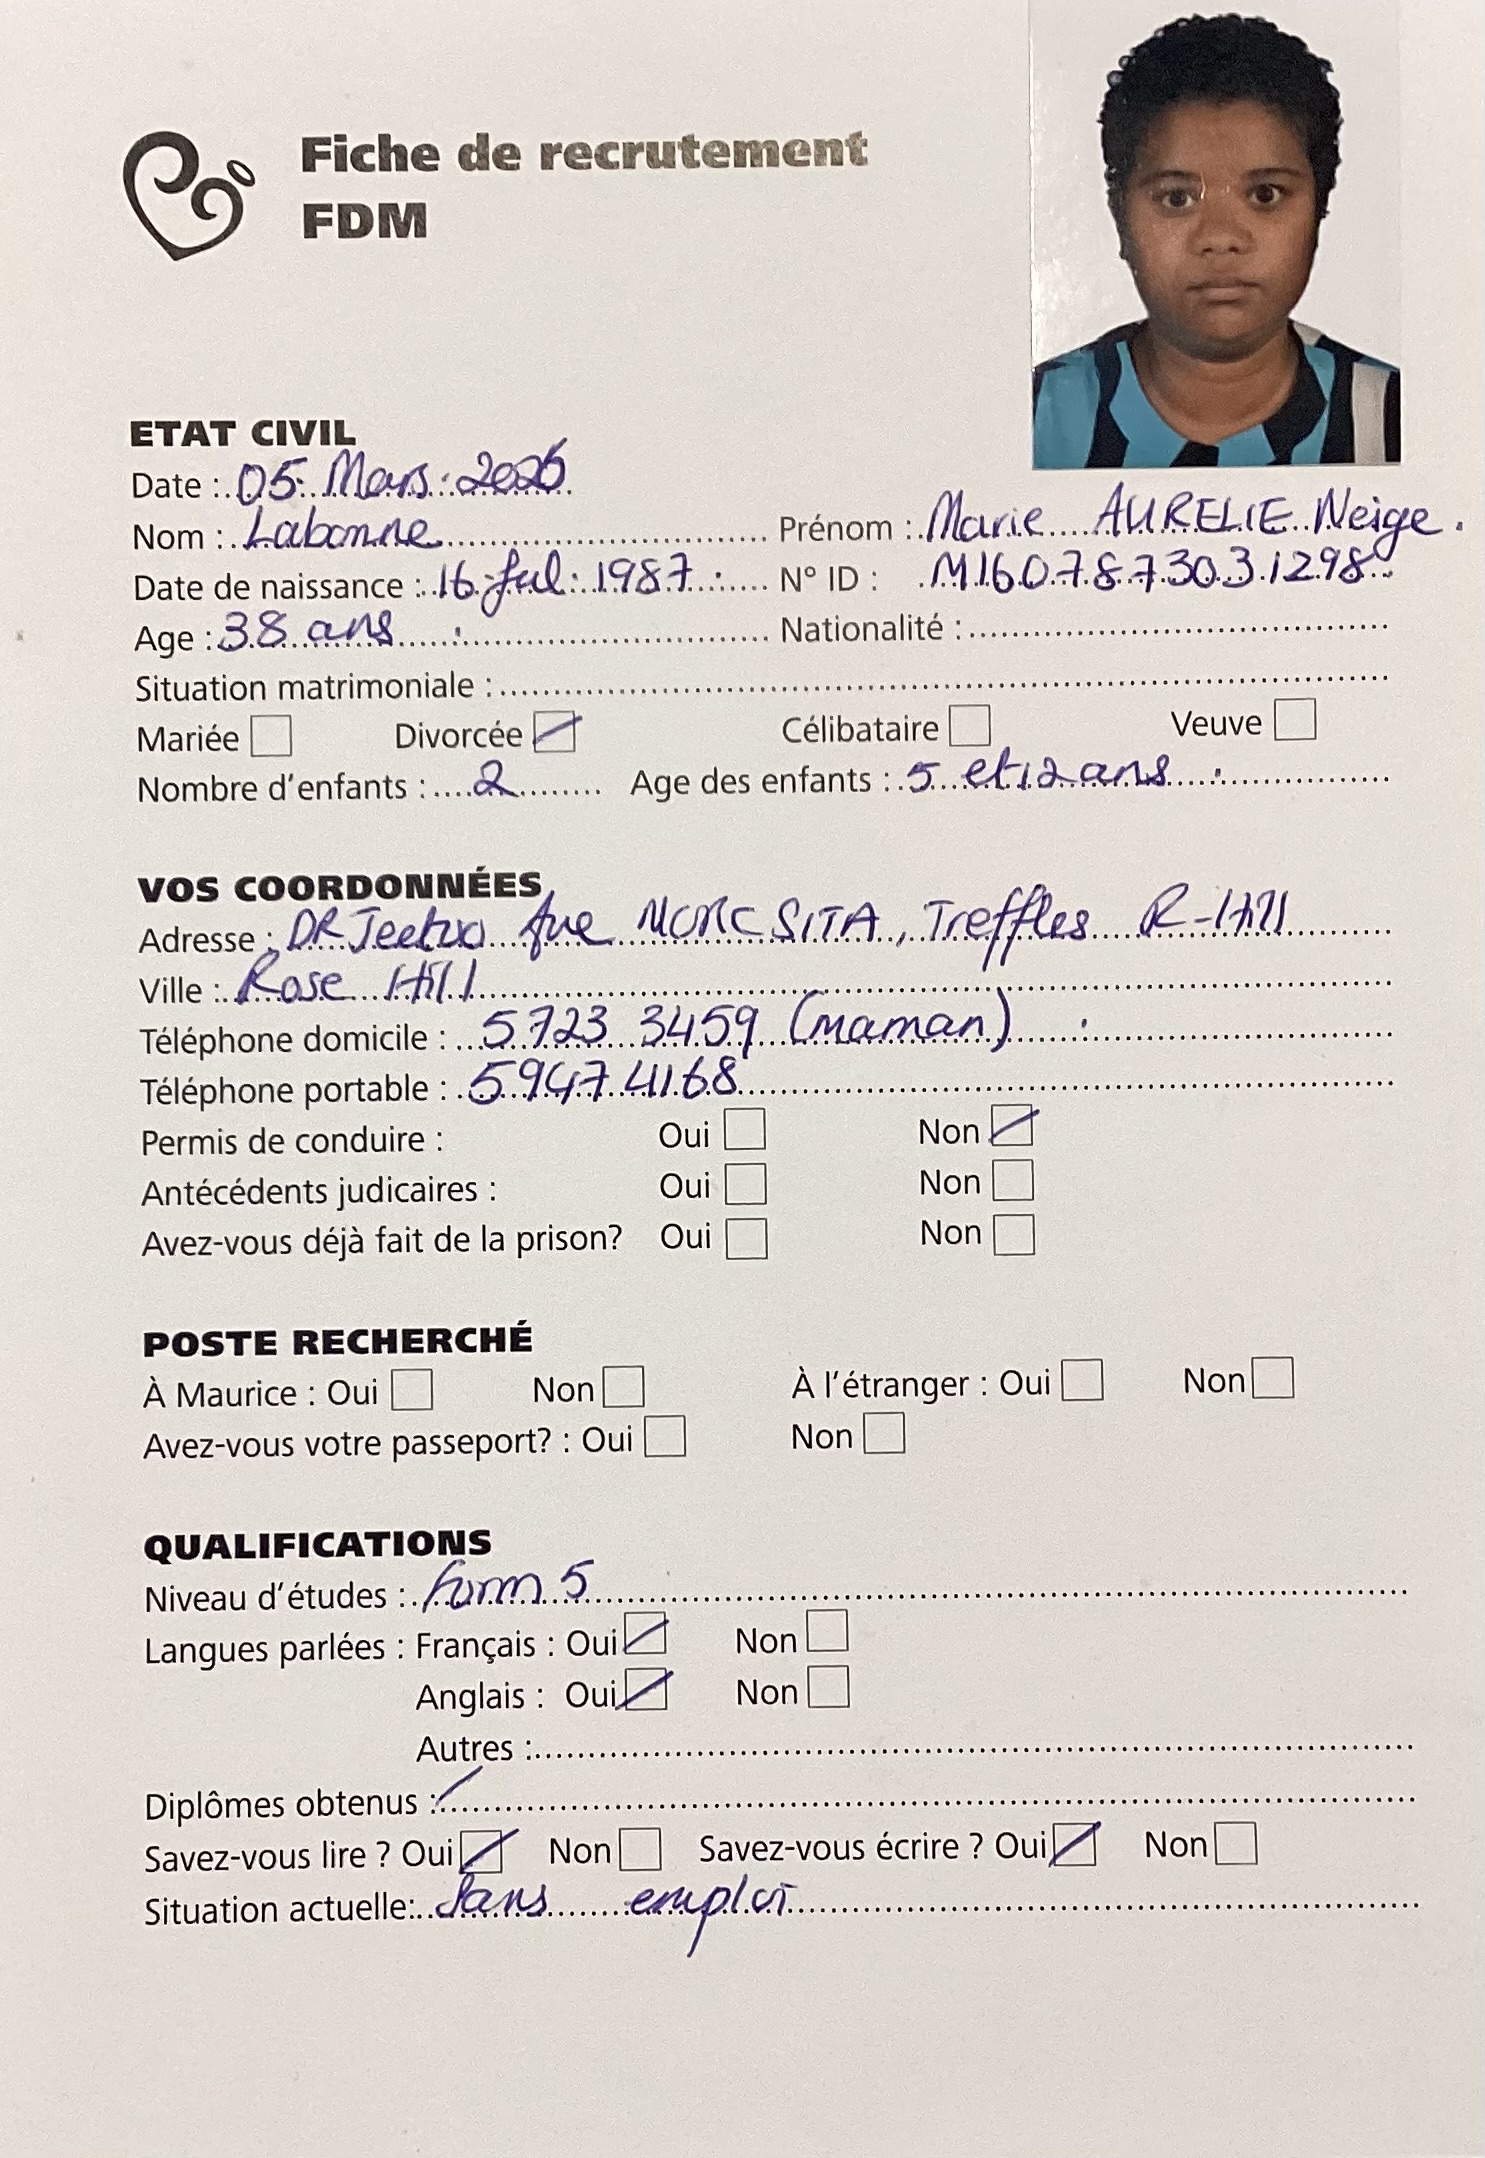 Fiche de recrutement
FDM
ETAT CIVIL
Date : 05 Mars 2026
Nom : Labonne Prénom : Marie AURELIE Neige.
Date de naissance : 16 Jul 1987 N° ID : M1607873031298
Age : 38 ans Nationalité :
Situation matrimoniale :
Mariée Divorcée Célibataire Veuve
Nombre d'enfants : 2 Age des enfants : 5 et 12 ans
VOS COORDONNÉES
Adresse : DR Jeetoo Ave SITA, Treffles R-Hill
Ville : Rose Hill
Téléphone domicile : 5723 3459 (maman)
Téléphone portable : 5947 4168
Permis de conduire : Oui Non
Antécédents judicaires : Oui Non
Avez-vous déjà fait de la prison? Oui Non
POSTE RECHERCHÉ
À Maurice : Oui Non À l'étranger : Oui Non
Avez-vous votre passeport? : Oui Non
QUALIFICATIONS
Niveau d'études : Form 5
Langues parlées : Français : Oui Non
Anglais : Oui Non
Autres :
Diplômes obtenus :
Savez-vous lire ? Oui Non Savez-vous écrire ? Oui Non
Situation actuelle: Sans emploi